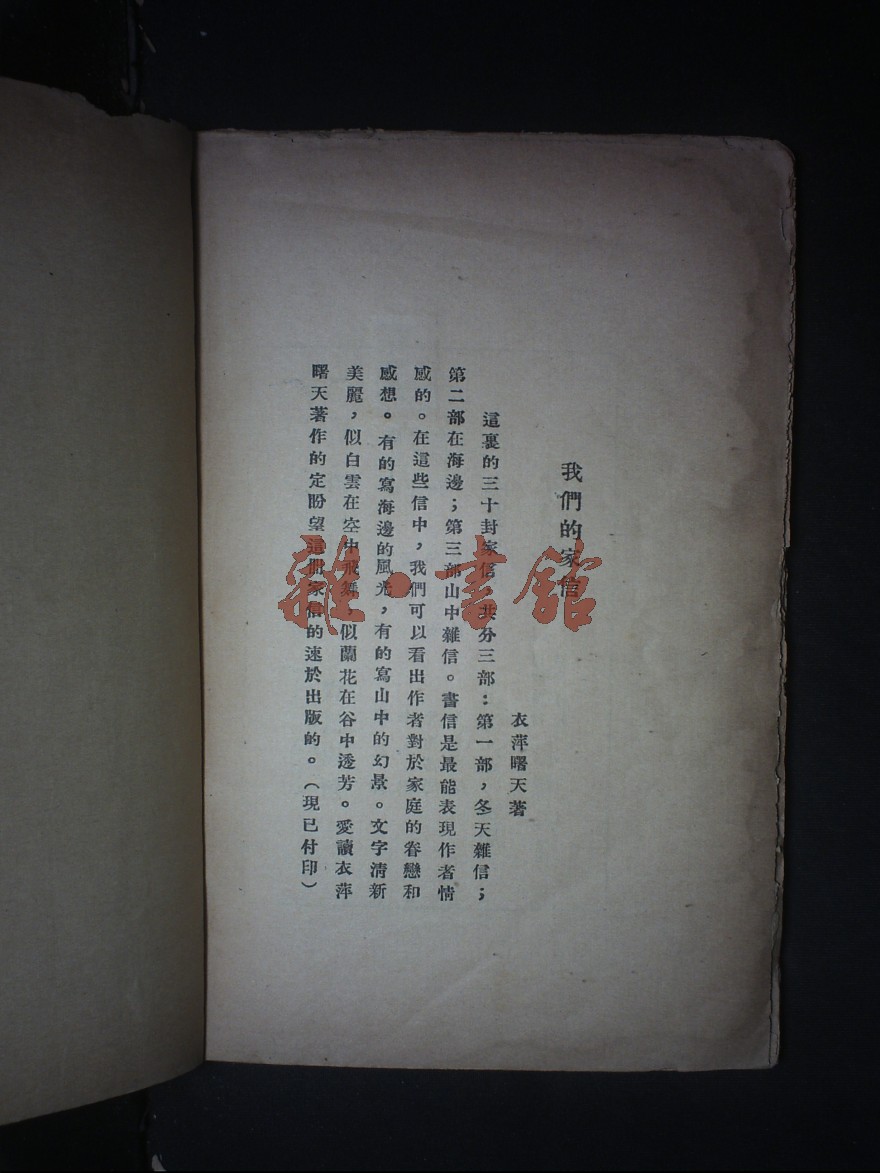 我們的家信
衣萍曙天著
這裏的三十封家信，共分三部：第一部，冬天雜信；
第二部在海邊；第三部山中雜信。書信是最能表現作者情
感的。在這些信中，我們可以看出作者對於家庭的眷戀和
感想。有的寫海邊的風光，有的寫山中的幻景。文字清新
美麗，似白雲在空中飛舞，似蘭花在谷中透芳。愛讀衣萍
曙天著作的定盼望這冊家信的速於出版的。（現已付印）
雜·書館